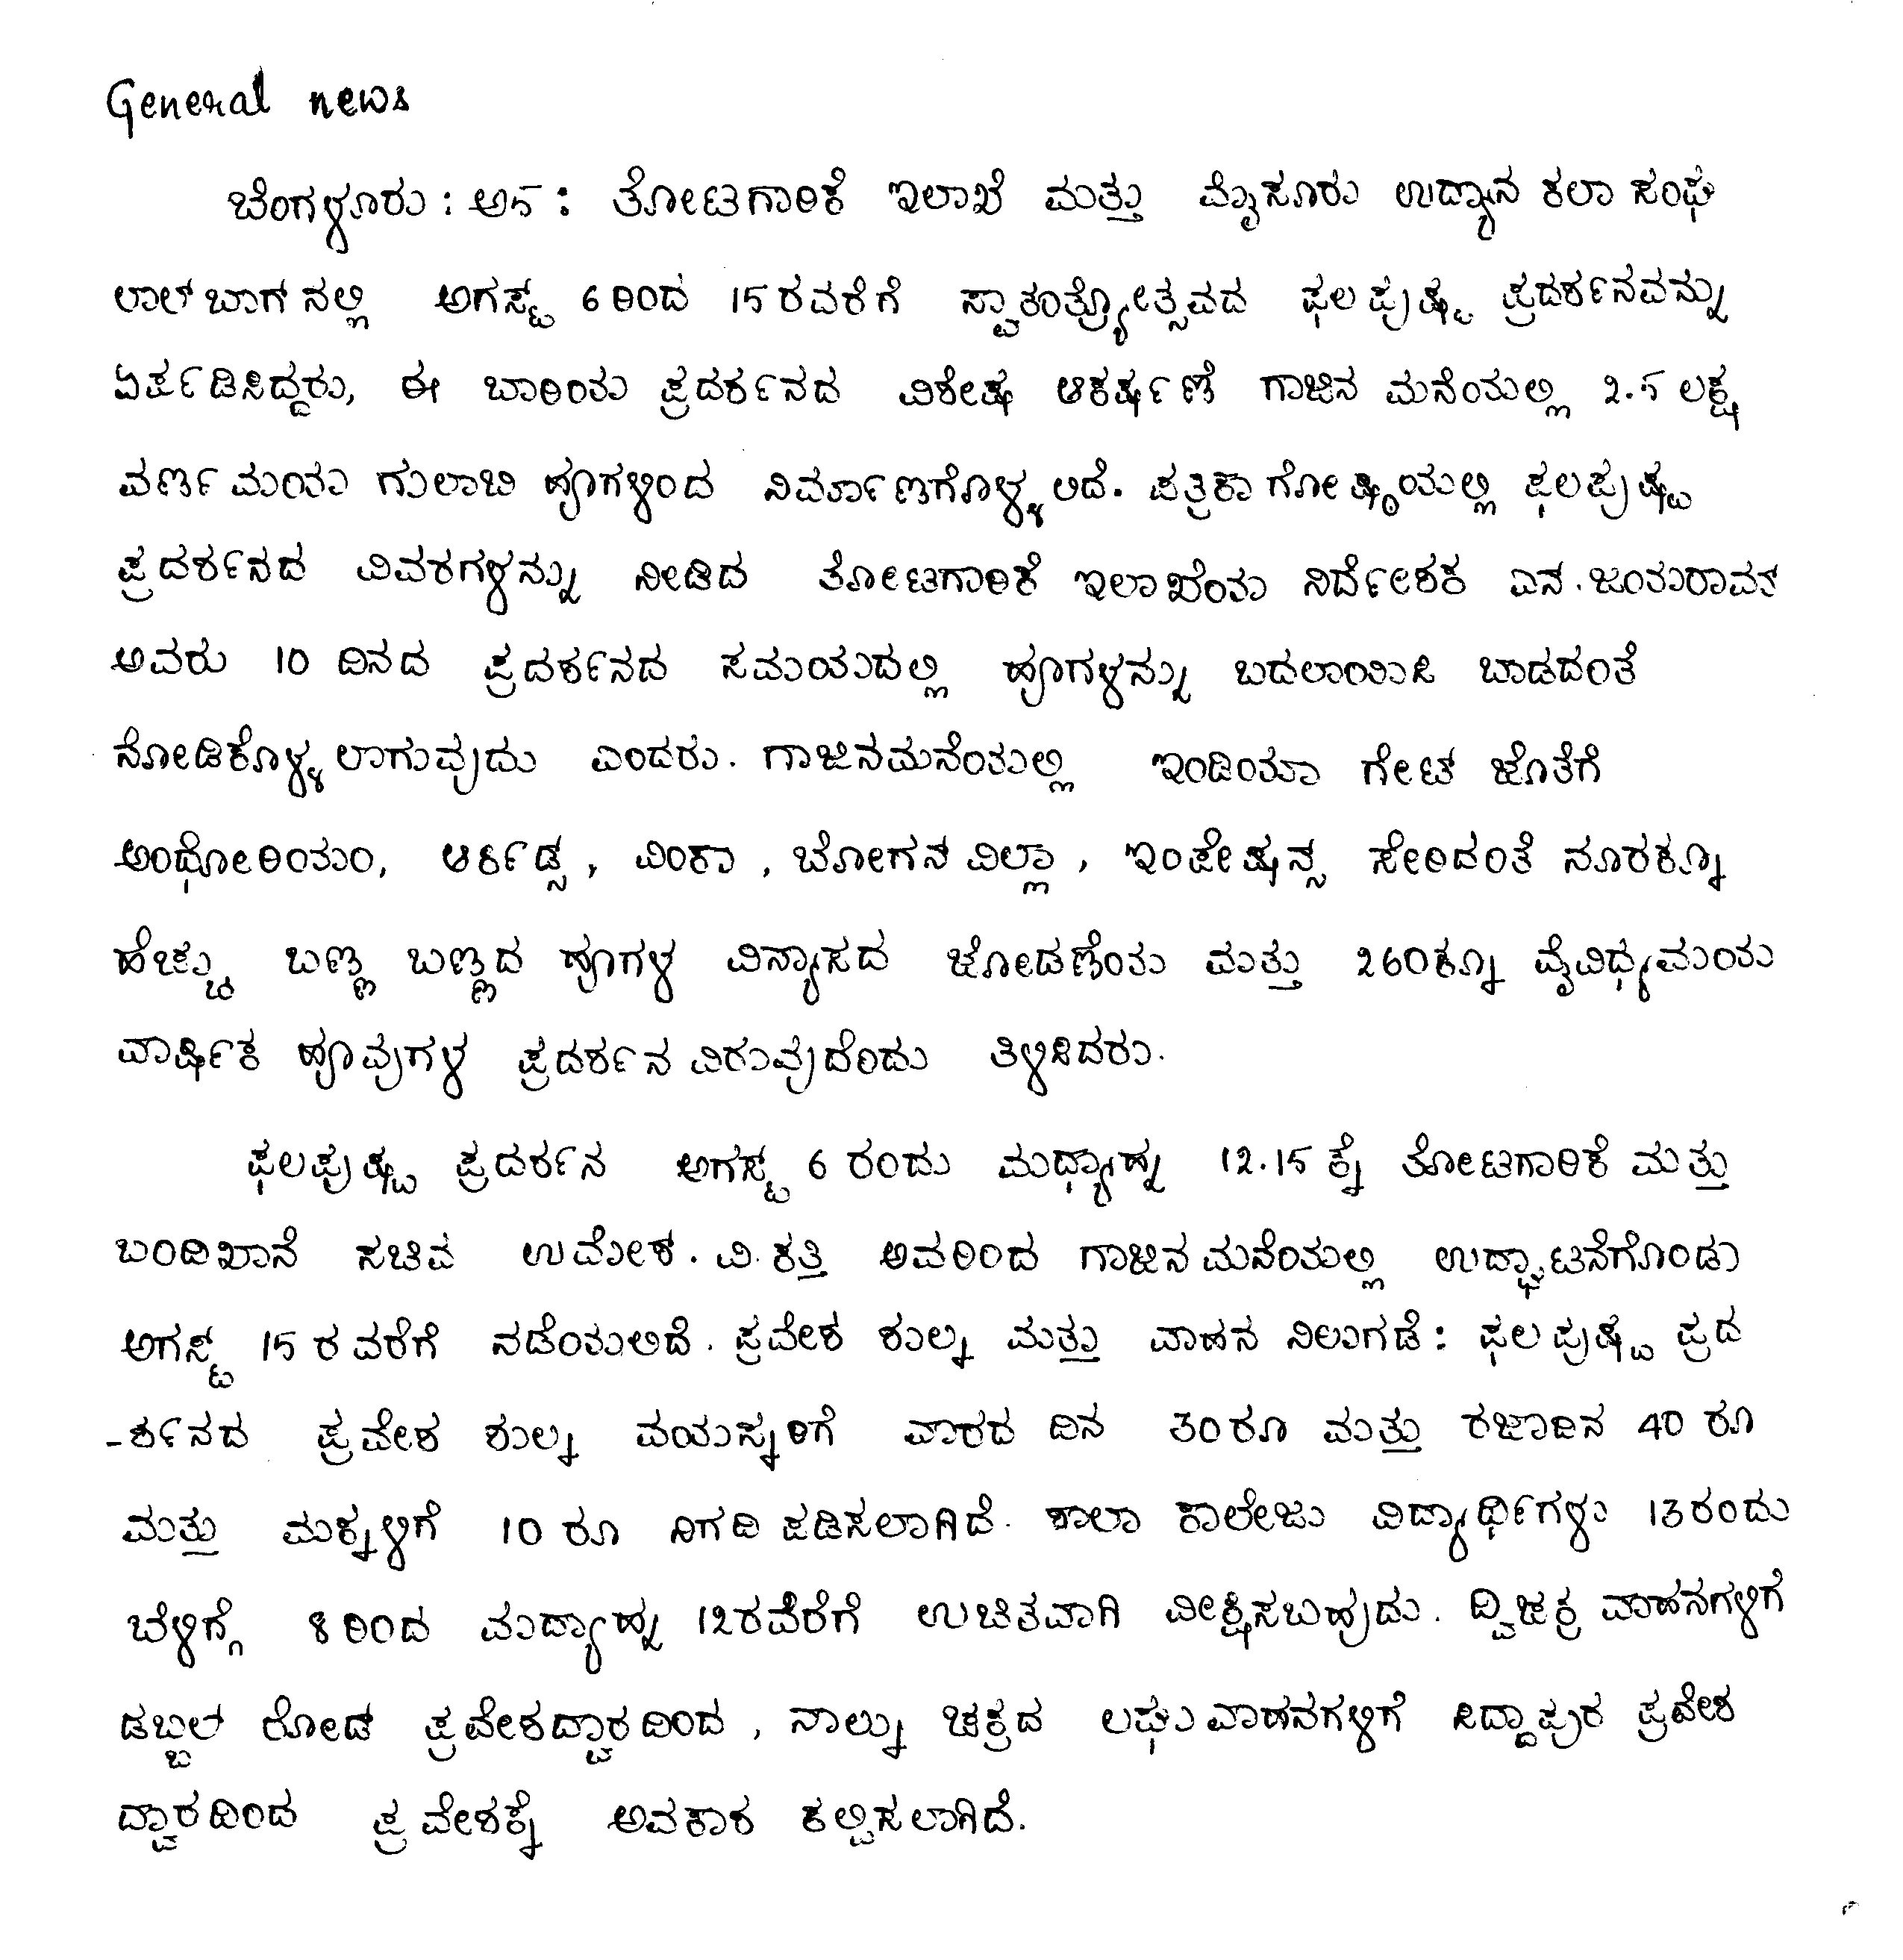 General news
ಬೆಂಗಳೂರು : ಅ5 : ತೋಟಗಾರಿಕೆ ಇಲಾಖೆ ಮತ್ತು ಮೈಸೂರು ಉದ್ಯಾನ ಕಲಾ ಸಂಘ
ಲಾಲ್ ಬಾಗ್ ನಲ್ಲಿ ಅಗಸ್ಟ್ 6 ರಿಂದ 15 ರವರೆಗೆ ಸ್ವಾತಂತ್ರ್ಯೋತ್ಸವದ ಫಲ ಪುಷ್ಪ ಪ್ರದರ್ಶನವನ್ನು
ಏರ್ಪಡಿಸಿದ್ದರು, ಈ ಬಾರಿಯ ಪ್ರದರ್ಶನದ ವಿಶೇಷ ಆಕರ್ಷಣೆ ಗಾಜಿನ ಮನೆಯಲ್ಲಿ 2.5 ಲಕ್ಷ
ವರ್ಣಮಯ ಗುಲಾಬಿ ಹೂಗಳಿಂದ ನಿರ್ಮಾಣಗೊಳ್ಳಲಿದೆ. ಪತ್ರಿಕಾ ಗೋಷ್ಠಿಯಲ್ಲಿ ಫಲಪುಷ್ಪ
ಪ್ರದರ್ಶನದ ವಿವರಗಳನ್ನು ನೀಡಿದ ತೋಟಗಾರಿಕೆ ಇಲಾಖೆಯ ನಿರ್ದೇಶಕ ಎನ್.ಜಯರಾಮ್
ಅವರು 10 ದಿನದ ಪ್ರದರ್ಶನದ ಸಮಯದಲ್ಲಿ ಹೂಗಳನ್ನು ಬದಲಾಯಿಸಿ ಬಾಡದಂತೆ
ನೋಡಿಕೊಳ್ಳಲಾಗುವುದು ಎಂದರು. ಗಾಜಿನಮನೆಯಲ್ಲಿ ಇಂಡಿಯಾ ಗೇಟ್ ಜೊತೆಗೆ
ಅಂಥೋರಿಯಂ, ಆರ್ಕಿಡ್ಸ, ವಿಂಕಾ, ಬೋಗನ್ ವಿಲ್ಲಾ, ಇಂಪೇಷನ್ಸ ಸೇರಿದಂತೆ ನೂರಕ್ಕೂ
ಹೆಚ್ಚು ಬಣ್ಣ ಬಣ್ಣದ ಹೂಗಳ ವಿನ್ಯಾಸದ ಜೋಡಣೆಯ ಮತ್ತು 260ಕ್ಕೂ ವೈವಿಧ್ಯಮಯ
ವಾರ್ಷಿಕ ಹೂವುಗಳ ಪ್ರದರ್ಶನ ವಿರುವುದೆಂದು ತಿಳಿಸಿದರು.
ಫಲಪುಷ್ಪ ಪ್ರದರ್ಶನ ಅಗಸ್ಟ್ 6 ರಂದು ಮಧ್ಯಾಹ್ನ 12.15 ಕ್ಕೆ ತೋಟಗಾರಿಕೆ ಮತ್ತು
ಬಂದಿಖಾನೆ ಸಚಿವ ಉಮೇಶ. ವಿ. ಕತ್ತಿ ಅವರಿಂದ ಗಾಜಿನ ಮನೆಯಲ್ಲಿ ಉದ್ಘಾಟನೆಗೊಂಡು
ಅಗಸ್ಟ್ 15 ರ ವರೆಗೆ ನಡೆಯಲಿದೆ. ಪ್ರವೇಶ ಶುಲ್ಕ ಮತ್ತು ವಾಹನ ನಿಲುಗಡೆ : ಫಲ ಪುಷ್ಪ ಪ್ರದ
-ರ್ಶನದ ಪ್ರವೇಶ ಶುಲ್ಕ ವಯಸ್ಕರಿಗೆ ವಾರದ ದಿನ 30ರೂ ಮತ್ತು ರಜಾದಿನ 40 ರೂ
ಮತ್ತು ಮಕ್ಕಳಿಗೆ 10 ರೂ ನಿಗದಿ ಪಡಿಸಲಾಗಿದೆ. ಶಾಲಾ ಕಾಲೇಜು ವಿದ್ಯಾರ್ಥಿಗಳು 13ರಂದು
ಬೆಳಿಗ್ಗೆ 8 ರಿಂದ ಮದ್ಯಾಹ್ನ 12ರವೆರೆಗೆ ಉಚಿತವಾಗಿ ವೀಕ್ಷಿಸಬಹುದು. ದ್ವಿಚಕ್ರ ವಾಹನಗಳಿಗೆ
ಡಬ್ಬಲ್ ರೋಡ್ ಪ್ರವೇಶದ್ವಾರದಿಂದ, ನಾಲ್ಕು ಚಕ್ರದ ಲಘು ವಾಹನಗಳಿಗೆ ಸಿದ್ದಾಪುರ ಪ್ರವೇಶ
ದ್ವಾರದಿಂದ ಪ್ರವೇಶಕ್ಕೆ ಅವಕಾಶ ಕಲ್ಪಿಸಲಾಗಿದೆ.